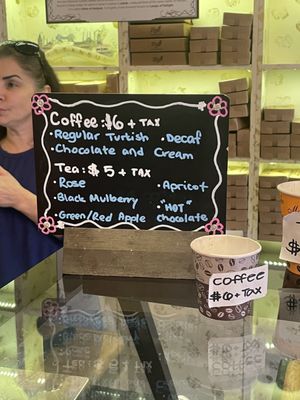 Coffee: $6 + TAX
• Regular Turkish • Decaf
• Chocolate and Cream
Tea: $5 + TAX
• Rose • Apricot
• Black Mulberry • "HOT"
• Green/Red Apple chocolate
Coffee
$6 + TAX